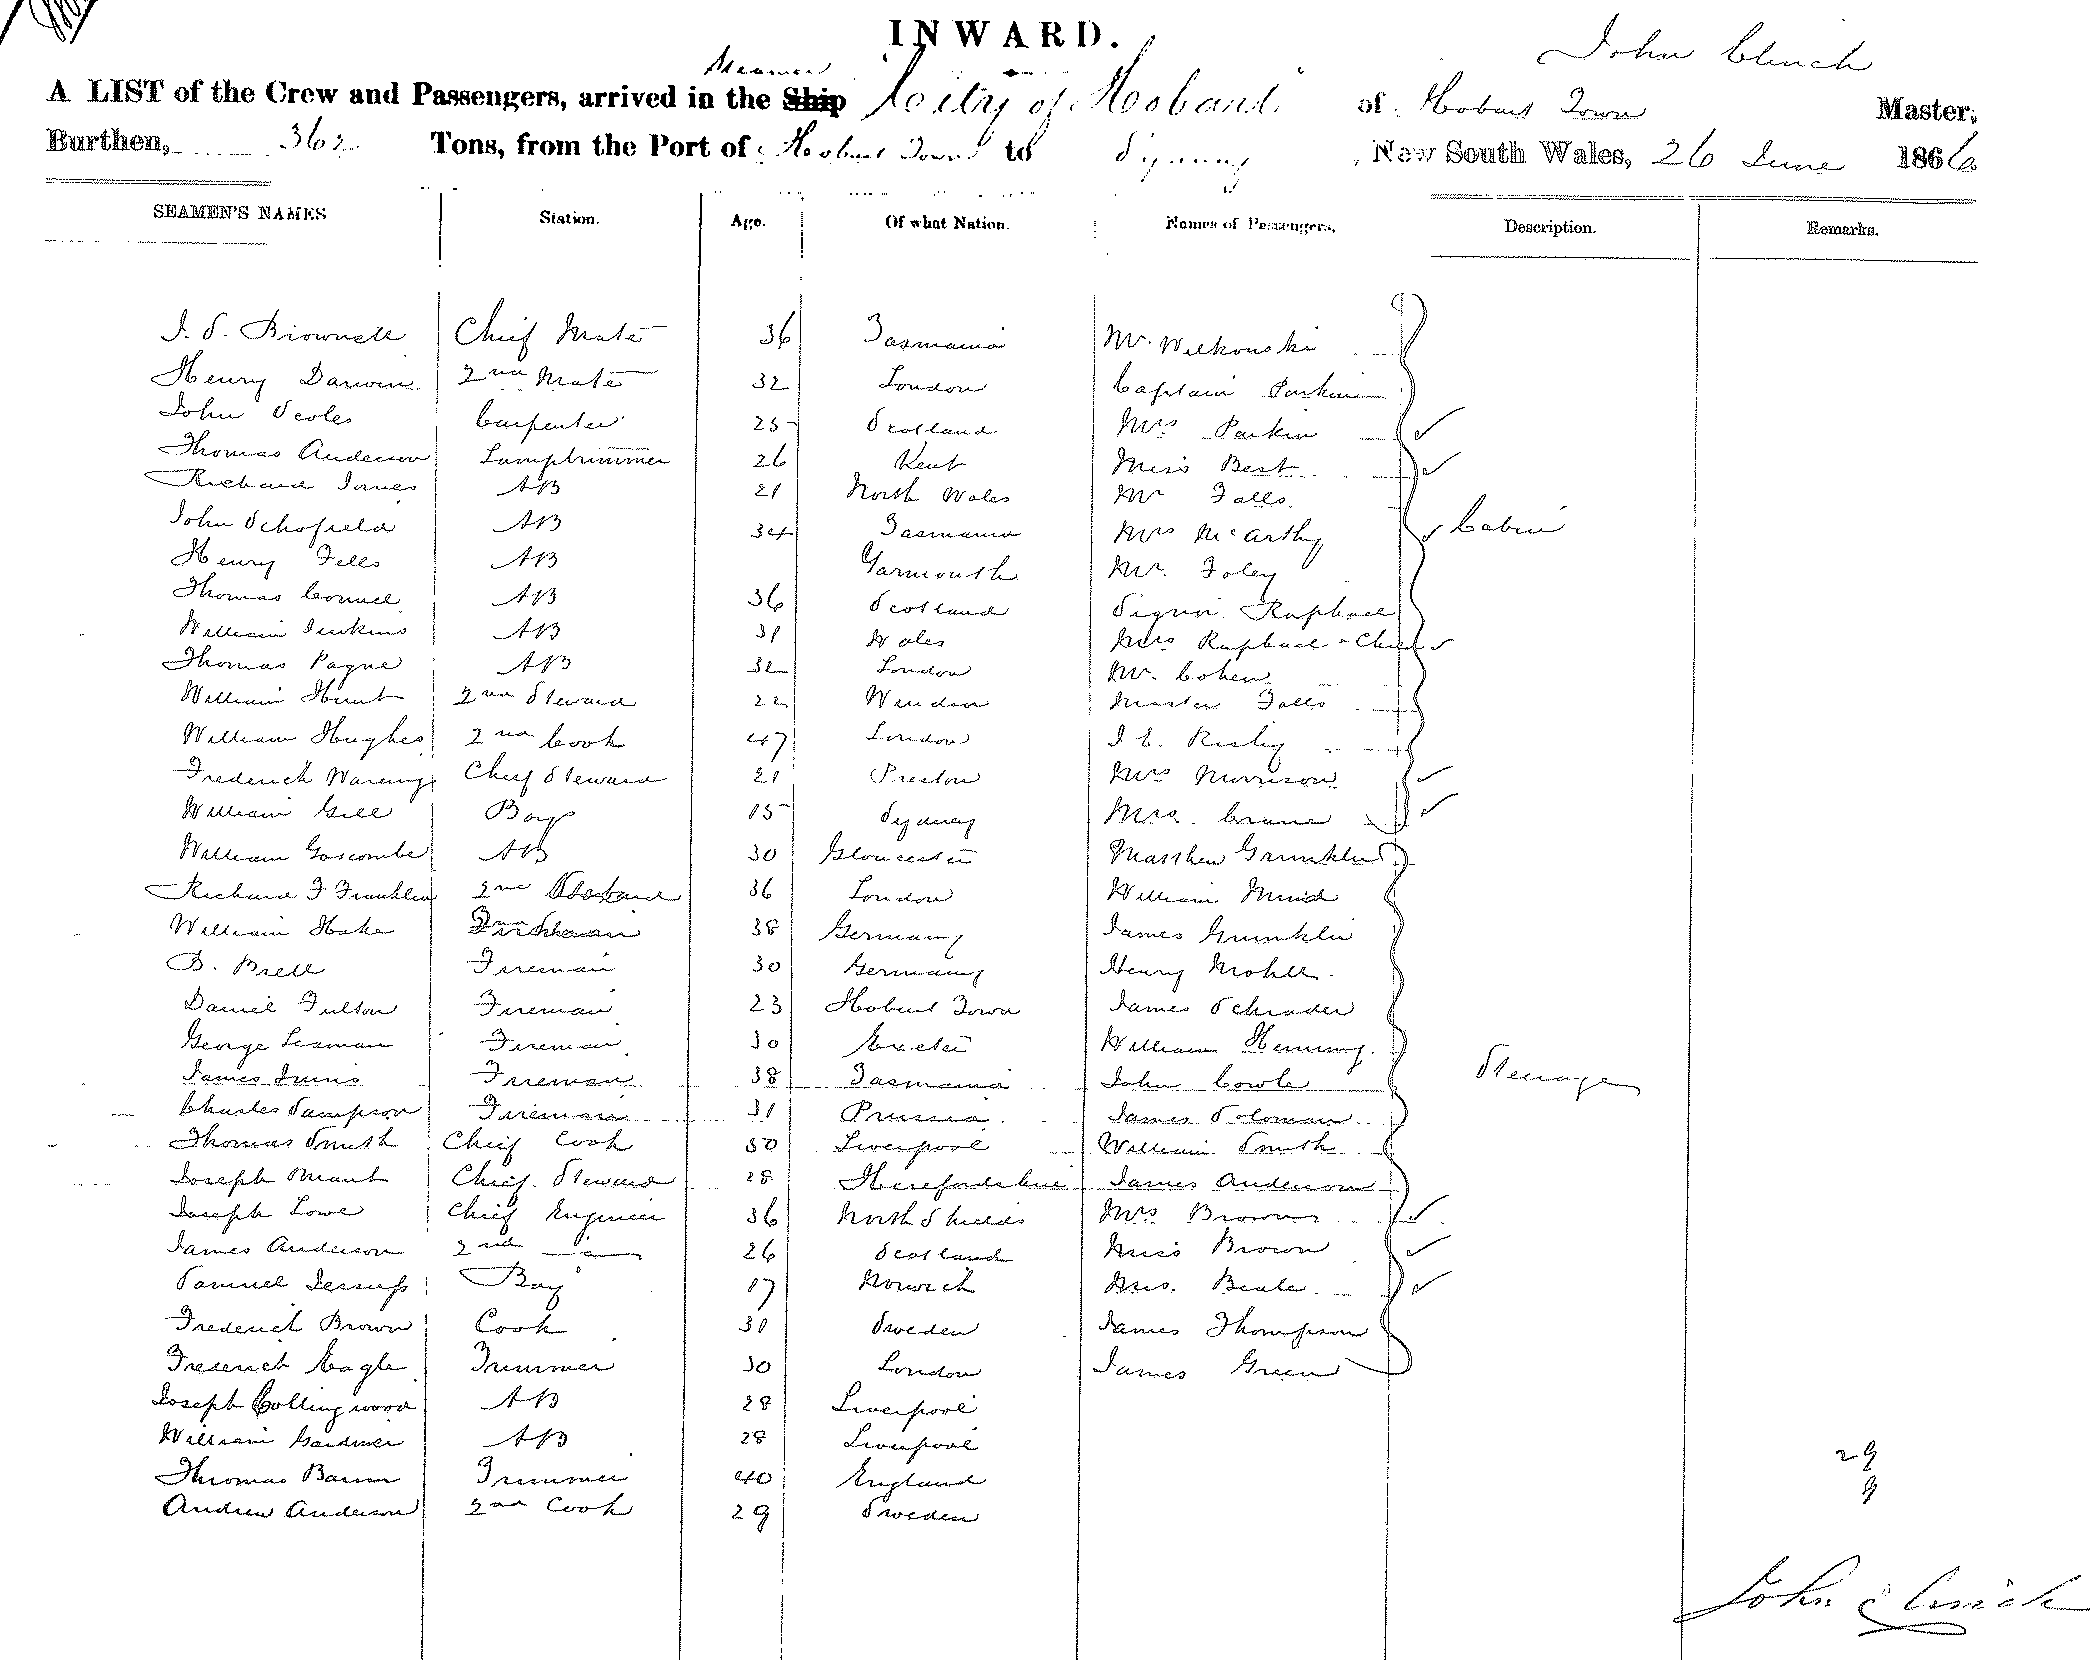 INWARD.
John Clinch
Steamer
A LIST of the Crew and Passengers, arrived in the Ship City of Hobart of Hobart Town Master,
Burthen, 362 Tons, from the Port of Hobart Town to Sydney, New South Wales, 26 June 1866
SEAMEN'S NAMES Station. Age. Of what Nation. Names of Passengers. Description. Remarks.
Brownell Chief Mate 36 Tasmania Mr.
Henry Darwin 2nd Mate 32 London Captain Parkin
John Scoles Carpenter 25 Scotland Mrs Parkin
Thomas Anderson Lamptrimmer 26 Kent Miss Best
Richard Jones AB 21 North Wales Mr Falls
John Schofield AB 34 Tasmania Mrs McCarthy Cabin
Henry Fells AB Yarmouth Mr. Foley
Thomas AB 36 Scotland Signor Raphael
William Jenkins AB 31 Wales Mrs Raphael & Child
Thomas Payne AB 32 London Mr. Cohen
William Hunt 2nd Steward 22 Master Falls
William Hughes 2nd Cook 47 London Risby
Frederick Waring Chief Steward 21 Preston Mrs Morrison
William Gill Boy 15 Sydney Mrs. Crane
William Goscombe AB 30 Gloucester Matthew
Richard F Franklin 2nd 36 London William
William Hake 38 Germany James
B. Brell Fireman 30 Germany Henry
Daniel Fulton Fireman 23 Hobart Town James Schrader
George Seaman Fireman 30 Exeter William Henning
James Innis Fireman 38 Tasmania John Cowle Steerage
Charles Sampson Fireman 31 Prussia James Soloman
Thomas Smith Chief Cook 30 Liverpool William Smith
Joseph Chief Steward 28 Herefordshire James Anderson
Joseph Lowe Chief Engineer 36 North Shields Mrs Brown
James Anderson 2nd do 26 Scotland Miss Brown
Samuel Jessup Boy 17 Norwich Mrs. Beale
Frederick Brown Cook 31 Sweden James Thompson
Frederick Eagle Trimmer 30 London James Green
Joseph Collingwood AB 28 Liverpool
William Gardiner AB 28 Liverpool
Thomas Trimmer 40 England
Andrew Anderson 2nd Cook 29 Sweden
29
9
John Clinch